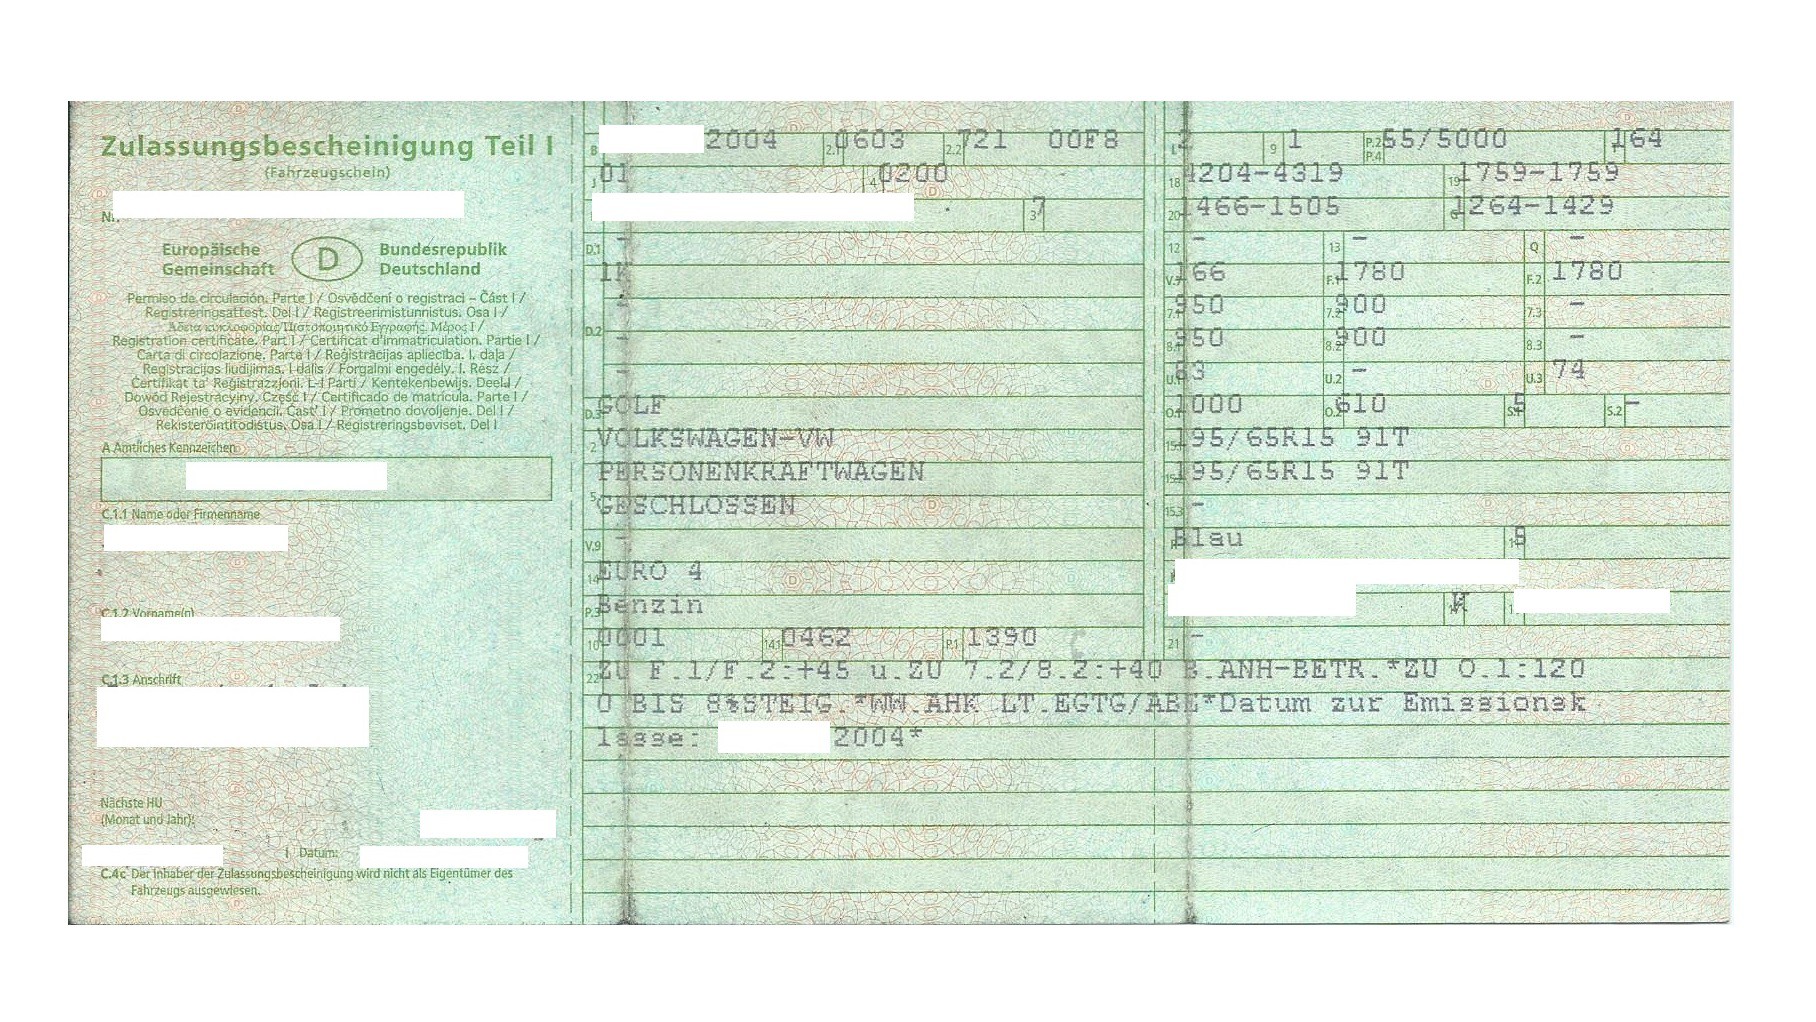 Zulassungsbescheinigung Teil I
(Fahrzeugschein)
Nr.
Europäische Gemeinschaft
D
Bundesrepublik Deutschland
Permiso de circulación. Parte I / Osvědčení o registraci – Část I /
Registreringsattest. Del I / Registreerimistunnistus. Osa I /
Άδεια κυκλοφορίας/Πιστοποιητικό Εγγραφής. Μέρος I /
Registration certificate. Part I / Certificat d'immatriculation. Partie I /
Carta di circolazione. Parte I / Reģistrācijas apliecība. I. daļa /
Registracijos liudijimas. I dalis / Forgalmi engedély. I. Rész /
Ċertifikat ta' Reġistrazzjoni. L-I Parti / Kentekenbewijs. Deel I /
Dowód Rejestracyjny. Część I / Certificado de matrícula. Parte I /
Osvedčenie o evidencii. Časť I / Prometno dovoljenje. Del I /
Rekisteröintitodistus. Osa I / Registreringsbeviset. Del I
A Amtliches Kennzeichen
C.1.1 Name oder Firmenname
C.1.2 Vorname(n)
C.1.3 Anschrift
Nächste HU
(Monat und Jahr):
Datum:
C.4c Der Inhaber der Zulassungsbescheinigung wird nicht als Eigentümer des
Fahrzeugs ausgewiesen.
B 2004 2.1 0603 2.2 721 00F8
J 01 4 0200
3 7
D.1 -
1K
-
D.2 -
-
D.3 GOLF
2 VOLKSWAGEN-VW
PERSONENKRAFTWAGEN
5 GESCHLOSSEN
V.9 -
14 EURO 4
P.3 Benzin
10 0001 14.1 0462 P.1 1390
L 2 9 1 P.2 P.4 55/5000 164
18 4204-4319 19 1759-1759
20 1466-1505 G 1264-1429
12 - 13 - Q -
V.7 166 F.1 1780 F.2 1780
7.1 950 7.2 900 7.3 -
8.1 950 8.2 900 8.3 -
U.1 83 U.2 - U.3 74
O.1 1000 O.2 610 S.1 5 S.2 -
15.1 195/65R15 91T
15.2 195/65R15 91T
15.3 -
R Blau 11 5
K
21 -
22 ZU F.1/F.2:+45 u.ZU 7.2/8.2:+40 B.ANH-BETR.*ZU O.1:120
0 BIS 8%STEIG.*WW.AHK LT.EGTG/ABE*Datum zur Emissionsk
lasse: 2004*